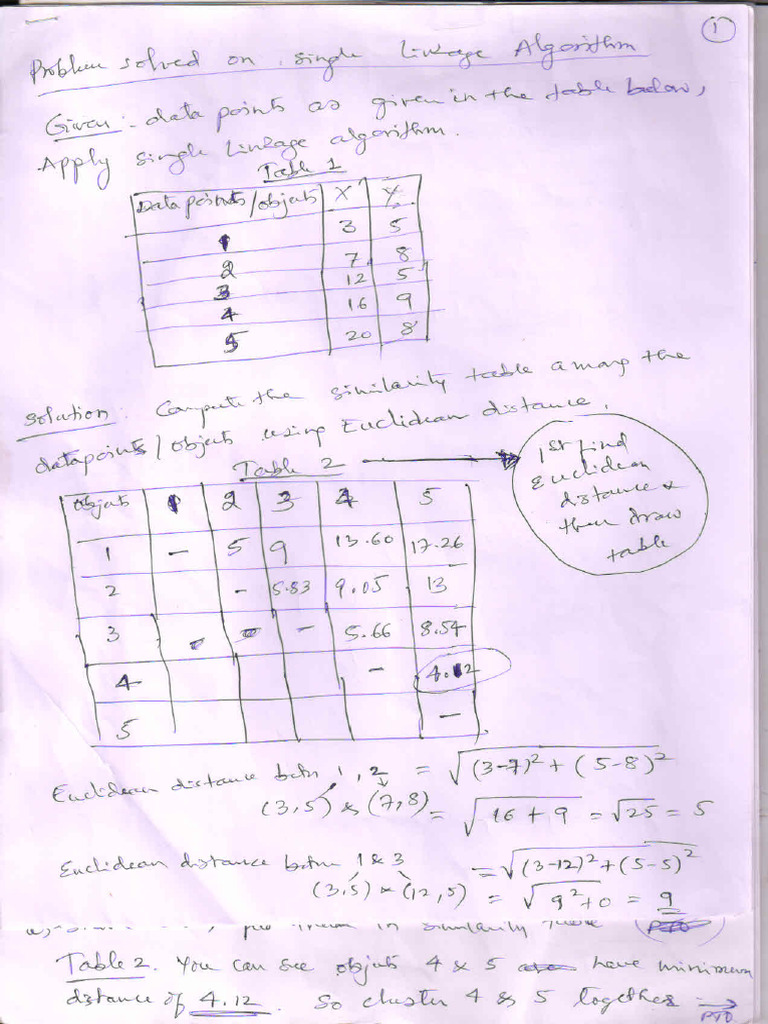 1
Problem solved on single Linkage Algorithm
Given :- data points as given in the table below,
Apply single Linkage algorithm.
Table 1
Data points/objects X Y
1 3 5
2 7 8
3 12 5
4 16 9
5 20 8
Solution : Compute the similarity table among the
data points/objects using Euclidean distance.
Table 2
1st find
Euclidean
distance &
then draw
table
Objects 1 2 3 4 5
1 - 5 9 13.60 17.26
2 - 5.83 9.05 13
3 - - - 5.66 8.54
4 - 4.12
5 -
Euclidean distance betn 1, 2 = √(3-7)² + (5-8)²
(3,5) & (7,8) = √16 + 9 = √25 = 5
Euclidean distance betn 1 & 3 = √(3-12)² + (5-5)²
(3,5) & (12,5) = √9²+0 = 9
in similarity PTO
Table 2. You can see objects 4 & 5 have minimum
distance of 4.12. So cluster 4 & 5 together →
PTO